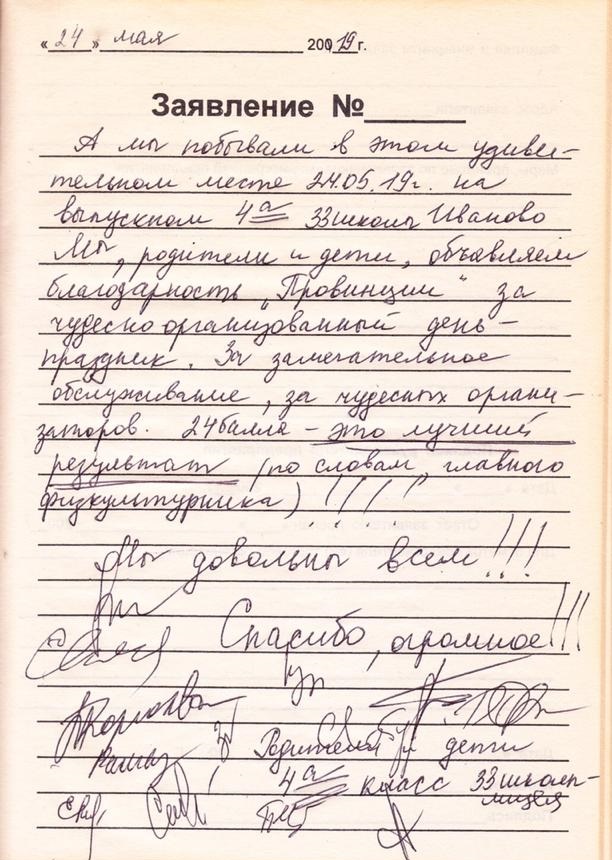 « 24 » мая 2019 г.
Заявление №
А мы побывали в этом удиви-
тельном месте 24.05.19г. на
выпускном 4а 33 школы Иваново
Мы, родители и дети, объявляем
благодарность „Провинции" за
чудесно организованный день-
праздник. За замечательное
обслуживание, за чудесных органи-
заторов. 24 балла - это лучший
результат (по словам, главного
физкультурника) !!!!!
Мы довольны всем!!!
Спасибо, огромное!!!
Родители и дети
4а класс 33 школы-
лицея